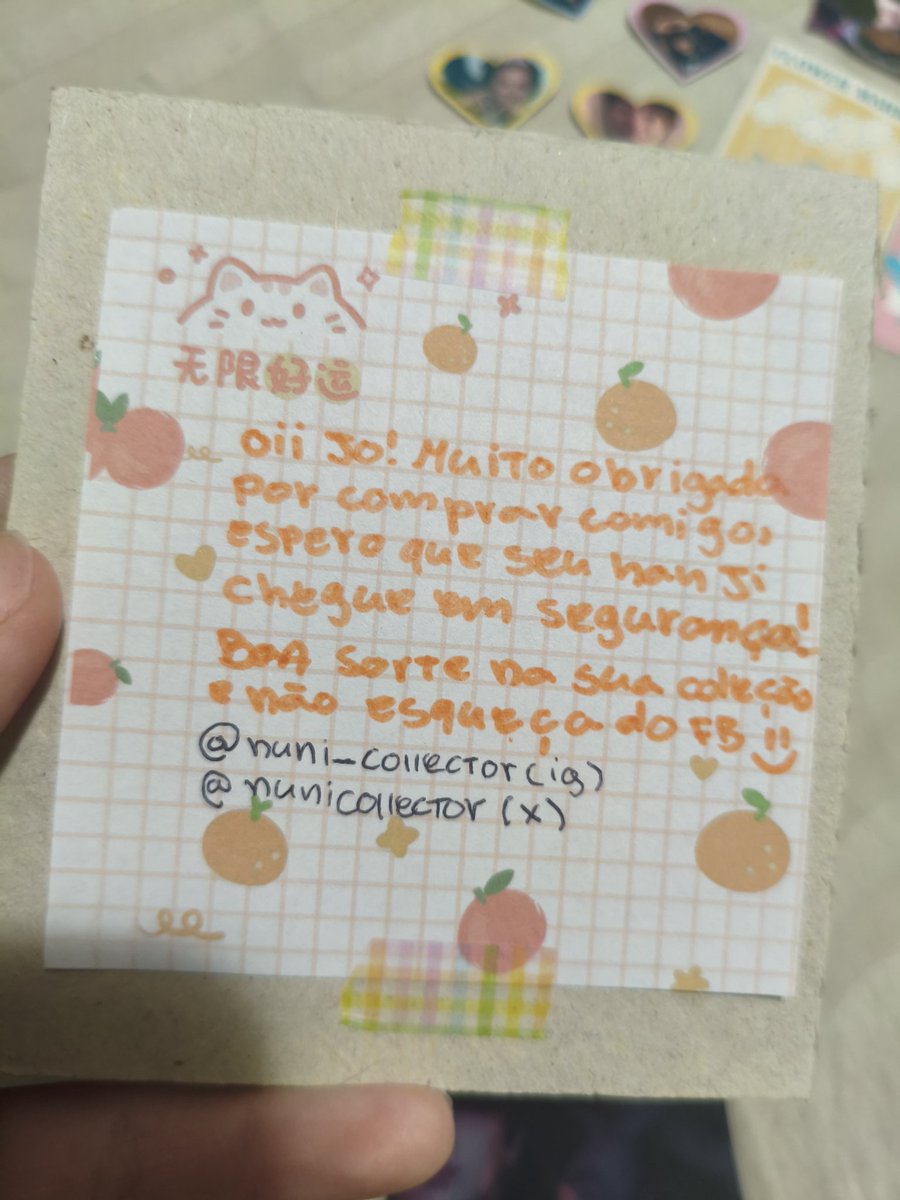 无限好运
Oii Jo! Muito obrigada
por comprar comigo,
espero que seu han ji
chegue em segurança!
Boa sorte na sua coleção
e não esqueça do FB !!
@nuni_collector (ig)
@nunicollector (x)